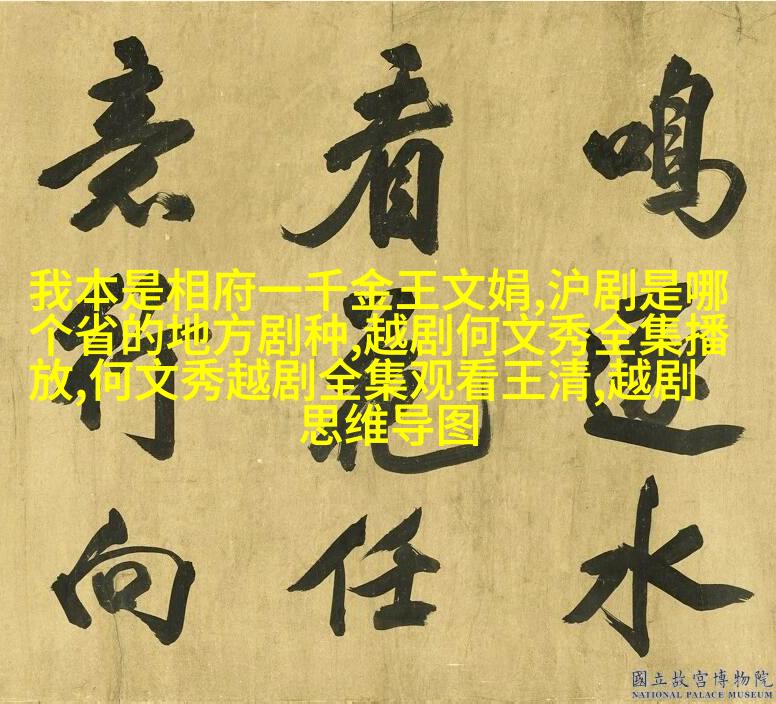 鳴水
看花任
意行向
我本是相府一千金王文娟,沪剧是哪
个省的地方剧种,越剧何文秀全集播
放,何文秀越剧全集观看王清,越剧
思维导图
國立故宮博物院
NATIONAL PALACE MUSEUM